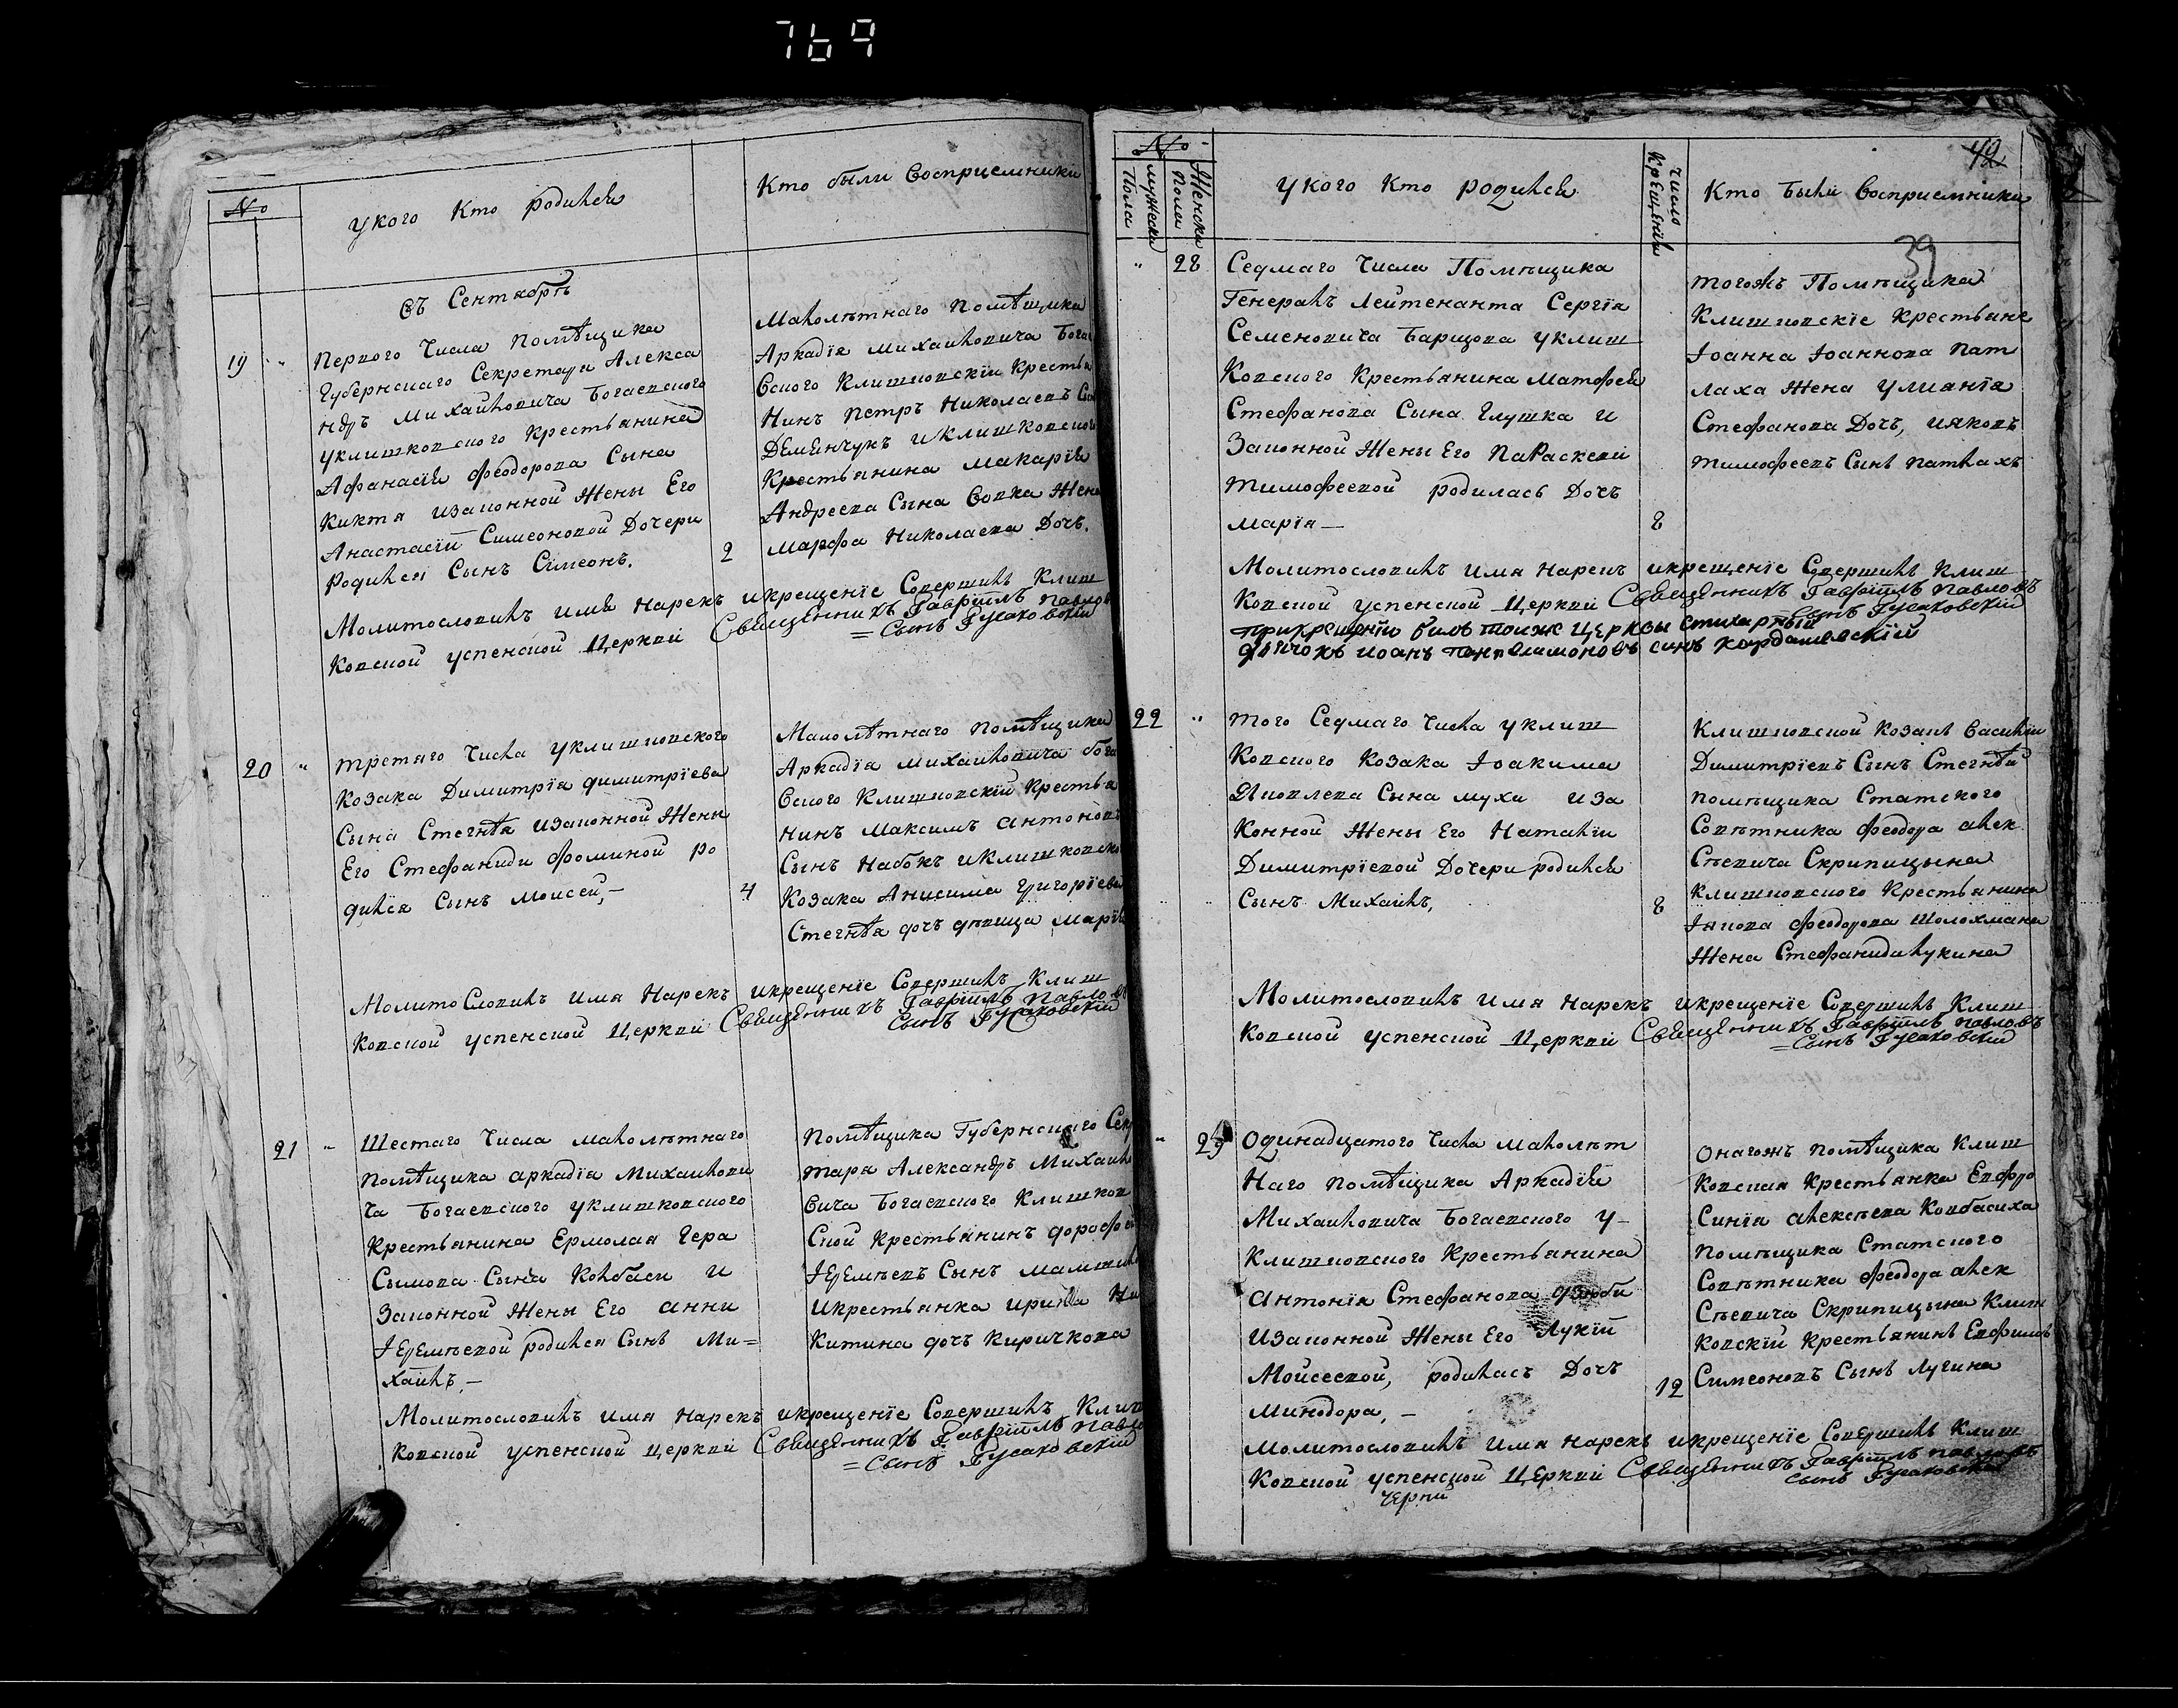 769
№
у кого Кто родился
Кто были Восприемники
Съ Сентября
19
Первого Числа Помѣщика
Губернскаго Секретаря Алекса
ндръ Михайловича Богаевского
уклишковского Крестьянина
Афанасия Феодорова Сына
Киктя изаконной Жены Его
Анастасіи Симеоновой Дочери
Родился Сынъ Симеонъ.
2
Малолѣтнаго Помѣщика
Аркадія Михайловича Бога
Вского Клишковскій Крестья
Нинъ Петръ Николаевъ Сы
Деменчукъ иклишковского
Крестьянина Макарія
Андреева Сына Вовка Жена
Марфа Николаева Дочь.
Молитвословилъ имя Нарекъ икрещеніе Совершилъ Клиш
Ковской успенской Церкви Священникъ Гавріилъ Павлов
=Сынъ Гусаковскій
20
третяго Числа уклишковского
Козака Димитрія димитріева
Сына Стегнѣя изаконной Жены
Его Стефаниди Фоминой ро
дился Сынъ Моисей,-
4
Малолѣтнаго помѣщика
Аркадія Михайловича бога
Вского Клишковскій Крестья
нинъ Максимъ антоновъ
Сынъ Набокъ иклишковско
Козака Анисима Григоріева
Стегнѣя дочъ дѣвица Марія
Молитвословилъ имя Нарекъ икрещеніе Совершилъ Клиш
Ковской успенской Церкви Священникъ Гавріилъ Павловъ
Сынъ Гусаковскій
21
Шестаго Числа малолѣтнаго
Помѣщика аркадія Михайлови
ча Богаевского уклишковского
Крестьянина Ермолая Гера
Сымова Сына Колбаси и
Законной Жены Его анни
Іеремѣевой родился Сынъ Ми=
хаилъ,-
Помѣщика Губернскаго Сек
таря Александръ Михайл
Вича Богаевского Клишков
Ской Крестьянинъ дорофе
Іеремѣевъ Сынъ
икрестьянка ирина Ни
Китина дочъ Киричкова
Молитвословилъ имя Нарекъ икрещеніе Совершилъ Клиш
Ковской успенской Церкви Священникъ Гавріилъ Павло
=Сынъ Гусаковскій
42
39
№
мужеска Пола
Женска Пола
у кого Кто родился
число Крещенія
Кто Были Восприемники
28
Седмаго Числа Помѣщика
Генералъ Лейтенанта Сергія
Семеновича Барщова уклиш
Ковского Крестьянина Матфея
Стефанова Сына Глушка и
Законной Жены Его Параскеви
Тимофеевой родилась Дочъ
Марія—
8
тогожъ Помѣщика
Клишковскіе Крестьяне
Іоанна Іоаннова Пат
лаха Жена Улианія
Стефанова Дочъ, ияковъ
тимофеевъ Сынъ патлахъ
Молитвословилъ имя Нарекъ икрещеніе Совершилъ Клиш
Ковской успенской Церкви Священникъ Гавріилъ Павловъ
Сынъ Гусаковскій
прикрещеніи билъ тояже Церквы стихарный
дячокъ иоанъ пантелимоновъ синъ кардашевскій
22
того Седмаго Числа уклиш
Ковского Козака Іоакима
Яковлева Сына Мухи иза
Конной Жены Его Наталіи
Димитріевой Дочери родился
Сынъ Михаилъ,
8
Клишковской Козакъ Василій
Димитріевъ Сынъ Стегнѣй
помѣщика Статского
Совѣтника Феодора алек
Сѣевича Скрипицына
Клишковского Крестьянина
Іякова Феодорова Шолохмана
Жена Стефанида лукина
Молитвословилъ имя Нарекъ икрещеніе Совершилъ Клиш
Ковской успенской Церкви Священникъ Гавріилъ Павловъ
=Сынъ Гусаковскій
29
Одинадцатого Числа малолѣт
Наго помѣщика Аркадія
Михайловича Богаевского у-
Клишковского Крестьянина
Антонія Стефанова дзюби
изаконной Жены Его Лукіи
Мойсеевой, родилась Дочъ
Минодора,-
12
Онагожъ помѣщика Клиш
Ковская Крестьянка Евфро
Синія алексѣева Ковбасиха
помѣщика Статского
Совѣтника Феодора алек
Сѣевича Скрипицына Клиш
Ковскій Крестьянинъ Евфимъ
Симеоновъ Сынъ Лугина
Молитвословилъ имя Нарекъ икрещеніе Совершилъ Клиш
Ковской успенской Церкви Священникъ Гавріилъ Павловъ
Сынъ Гусаковскій